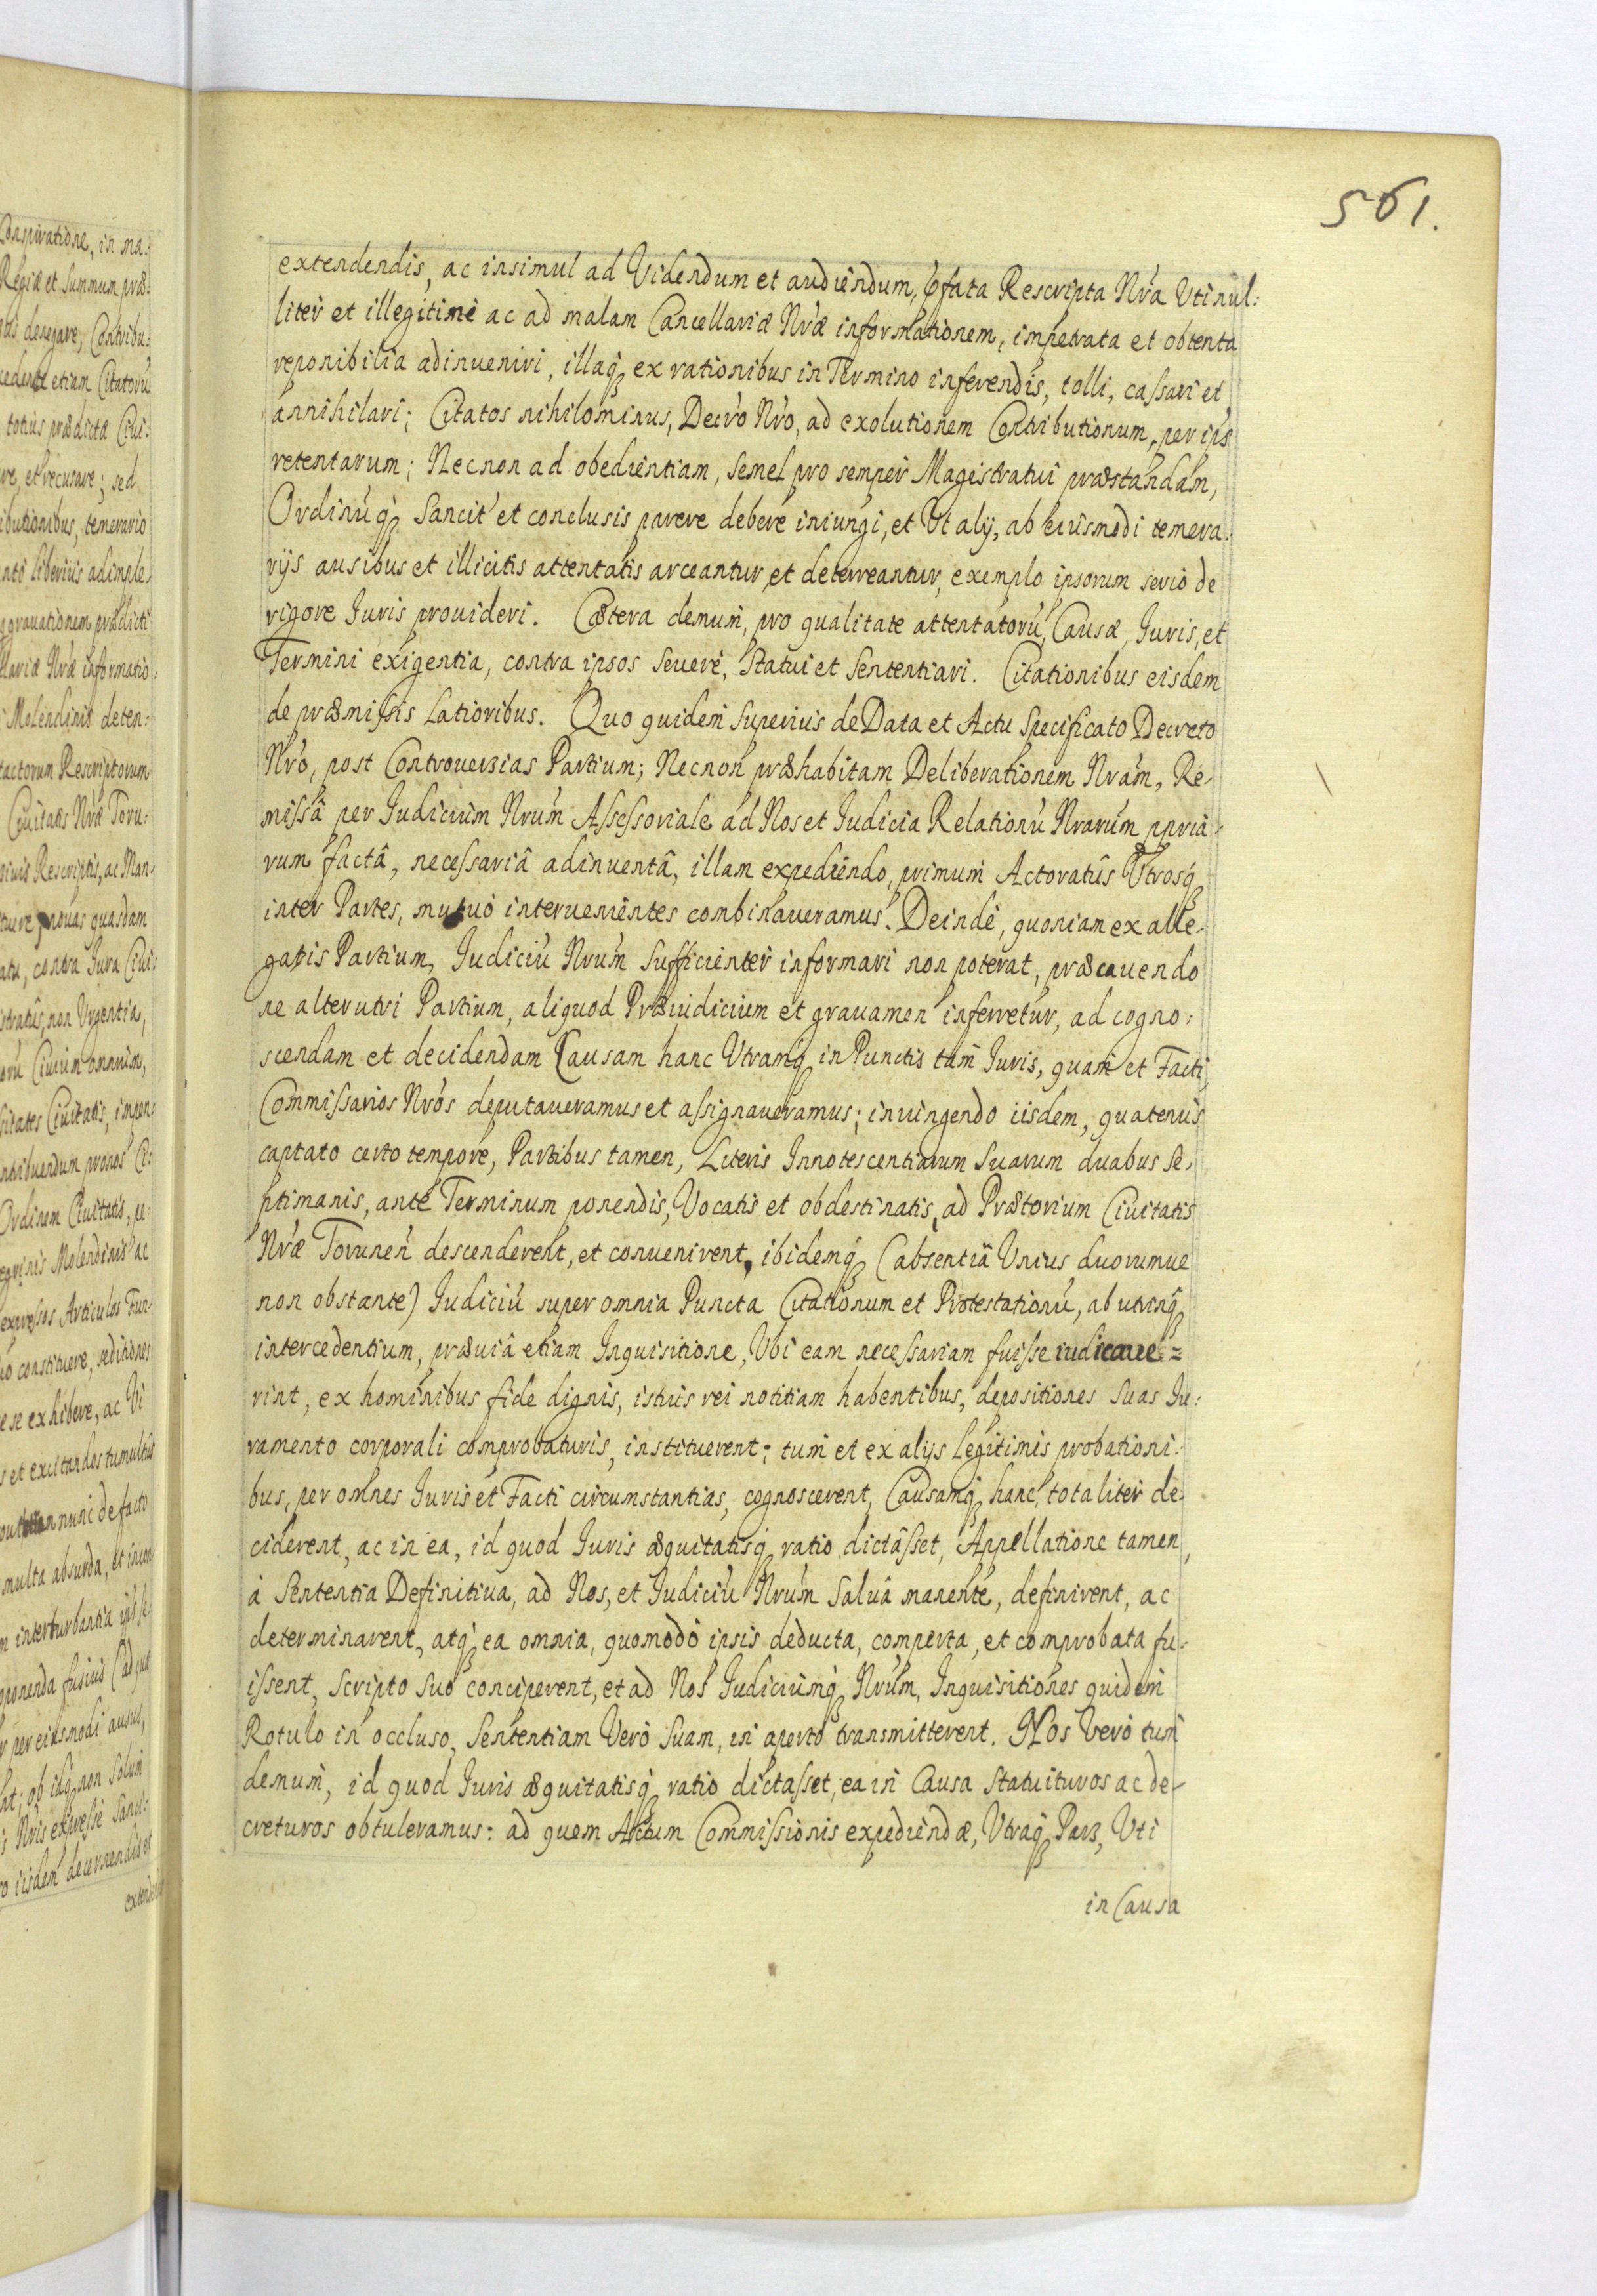 561.
extendendis, ac insimul ad Videndum et audiendum, pfata Rescripta Nra Uti nul:
liter et illegitime ac ad malam Cancellariæ Nræ informationem, impetrata et obtenta
reponibilia adinueniri, illaq́ꝫ ex rationibus in Termino inferendis, tolli, cassari et
annihilari; Citatos nihilominus, Decro Nro, ad exolutionem Contributionum, per ips
retentarum; Necnon ad obedientiam, semel pro semper Magistratui præstandam,
Ordinúq́ꝫ Sancit et conclusis parere debere iniungi, et Ut alÿ, ab eiusmodi temera:
rÿs ausibus et illicitis attentatis arceantur, et deterreantur, exemplo ipsorum serio de
rigore Iuris prouideri. Cætera demum, pro qualitate attentatorú, Causæ, Iuris, et
Termini exigentia, contra ipsos seuerè, Statui et Sententiari. Citationibus eisdem
de præmissis Latioribus. Quo quidem superius de Data et Actu specificato Decreto
Nro, post Controuersias Partium; Necnon præhabitam Deliberationem Nram, Re-
missâ per Iudicium Nrum Assessoriale ad Nos et Iudicia Relationú Nrarum ppria:
rum factâ, necessariâ adinuentâ, illam expediendo, primum Actoratûs Utrosq́ꝫ
inter Partes, mutuò interuenientes combinaueramus. Deinde, quoniam ex alle-
gatis Partium, Iudiciú Nrum Sufficienter informari non poterat, præcauendo
ne alterutri Partium, aliquod Præiudicium et grauamen inferretur, ad cogno:
scendam et decidendam Causam hanc Utramq́ꝫ in Punctis tam Iuris, quam et Facti,
Commissarios Nros deputaueramus et assignaueramus; iniungendo iisdem, quatenus
captato certo tempore, Partibus tamen, Literis Innotescentiarum Suarum duabus Se-
ptimanis, ante Terminum ponendis, Vocatis et obdestinatis, ad Prætorium Ciuitatis
Nræ Torunen descenderent, et conuenirent, ibidemq́ꝫ (absentiâ Unius duorumue
non obstante) Iudiciú super omnia Puncta Citationum et Protestationú, ab utrinq́ꝫ
intercedentium, præuiâ etiam Inquisitione, Ubi eam necessariam fuisse iudicaue=
rint, ex hominibus fide dignis, istius rei notitiam habentibus, depositiones suas Iu:
ramento corporali comprobaturis, instituerent; tum et ex alÿs legitimis probationi:
bus, per omnes Iuris et Facti circumstantias, cognoscerent, Causamq́ꝫ hanc totaliter de-
ciderent, ac in ea, id quod Iuris æquitatisq́ꝫ ratio dictâsset, Appellatione tamen,
à Sententia Definitiua, ad Nos, et Iudiciú Nrum Saluâ manente, definirent, ac
determinarent, atq́ꝫ ea omnia, quomodò ipsis deducta, comperta, et comprobata fu:
issent, scripto suo conciperent, et ad Nos Iudiciumq́ꝫ Nrum, Inquisitiones quidem
Rotulo in occluso, Sententiam Verò Suam, in aperto transmitterent. Nos Verò tum
demum, id quod Iuris æquitatisq́ꝫ ratio dictasset, ea in Causa Statuituros ac de-
creturos obtuleramus: ad quem Actum Commissionis expediendæ, Utraq́ꝫ Pars, Uti
in Causa